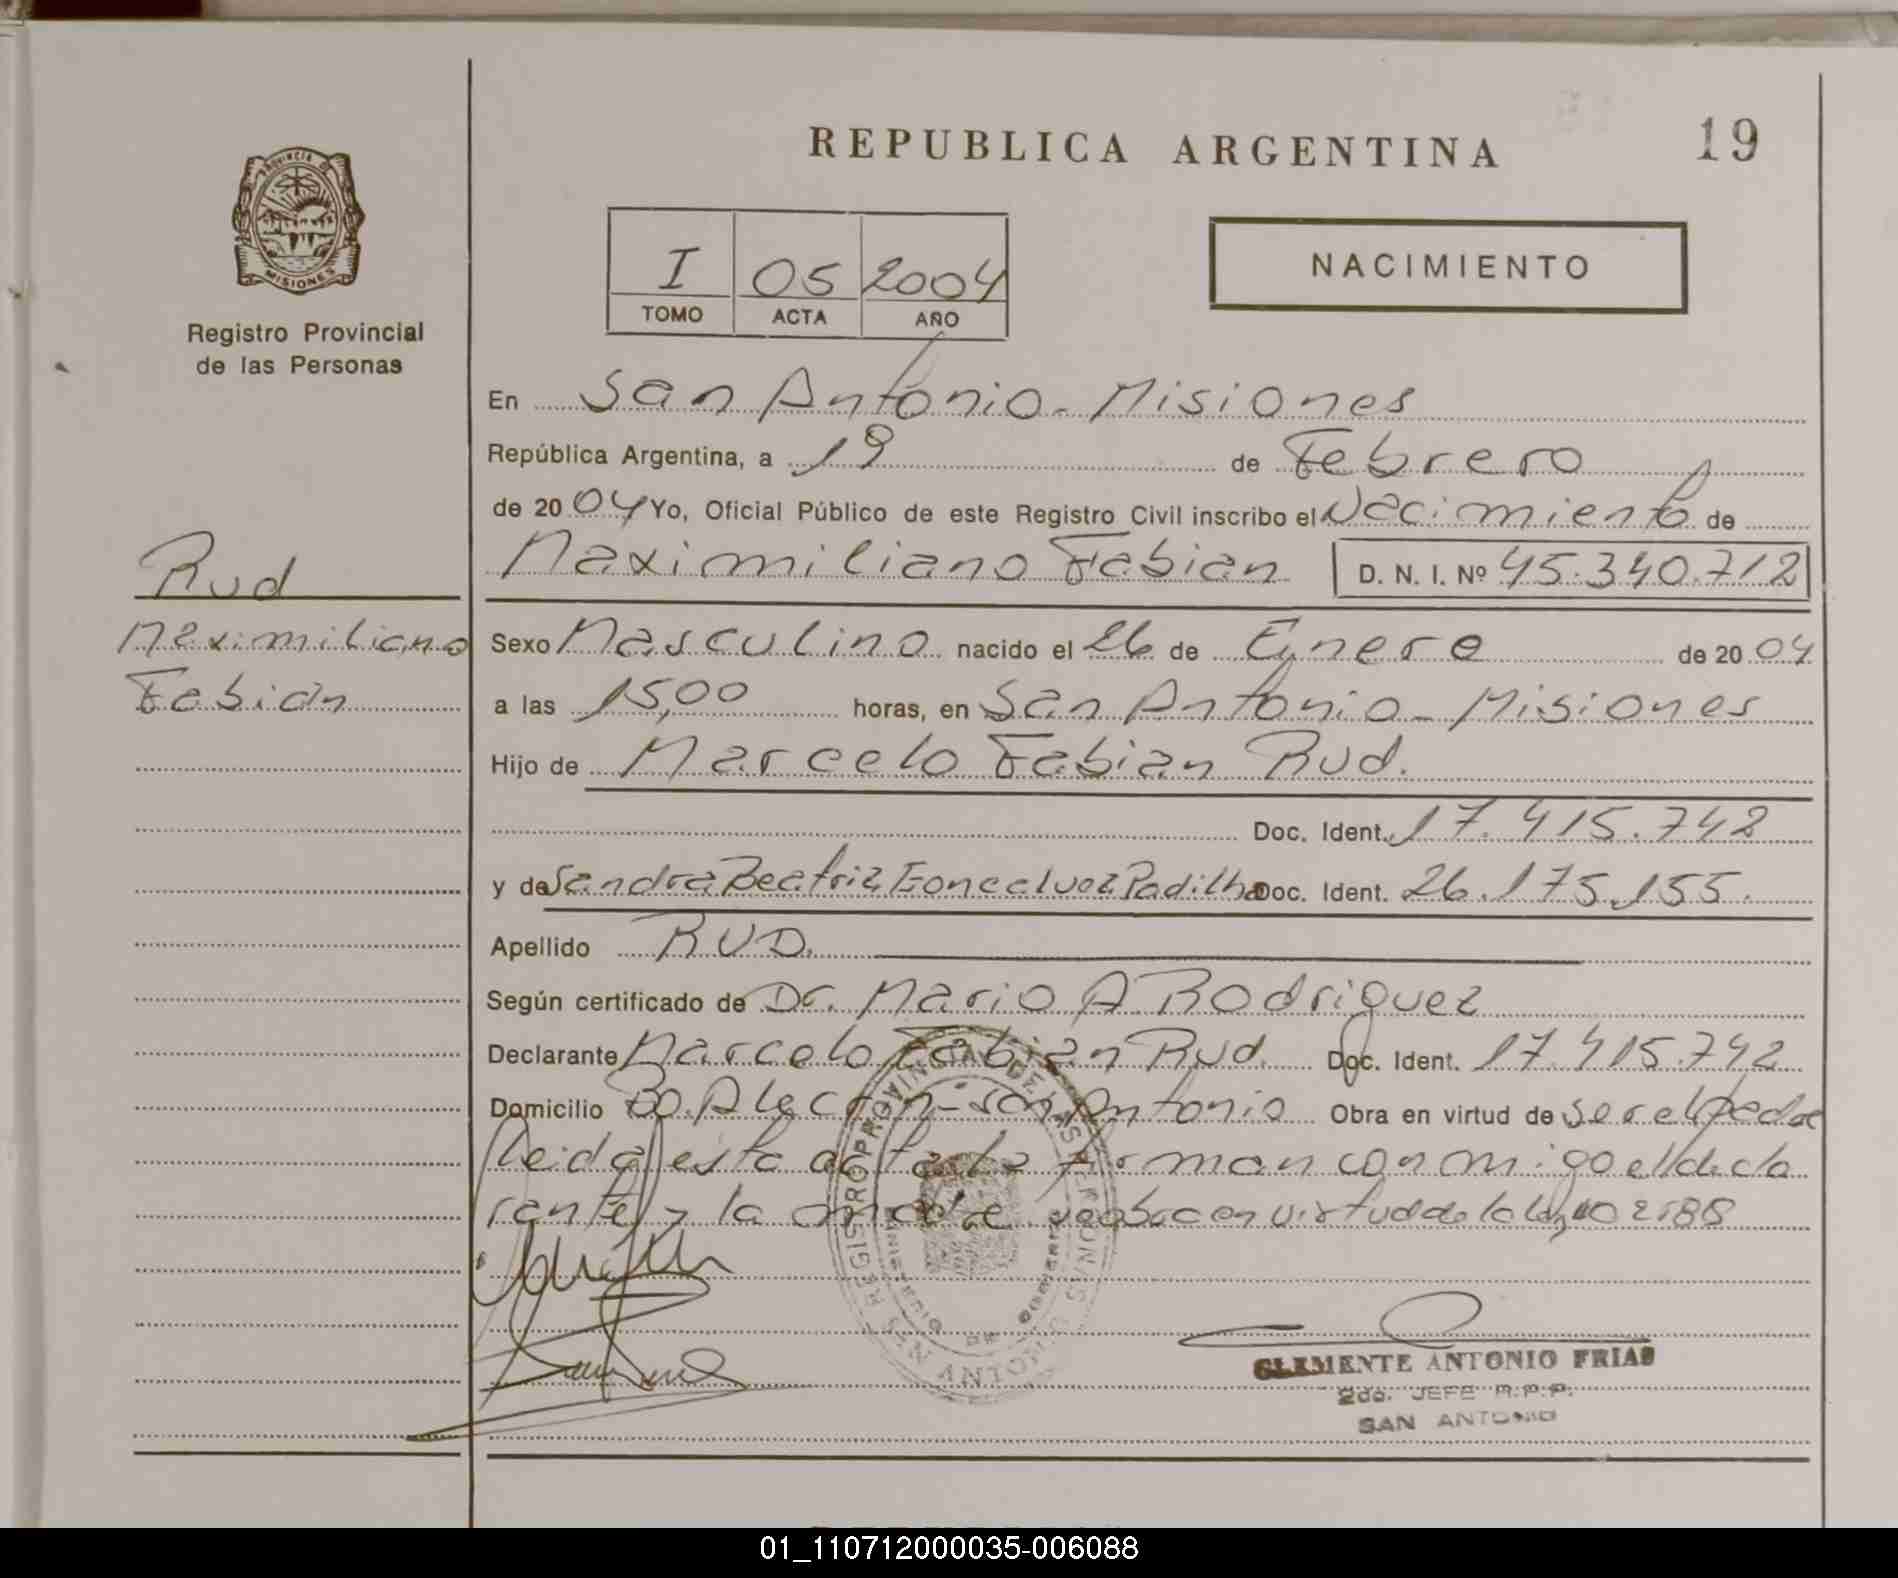 REPUBLICA ARGENTINA
19
PROVINCIA DE
MISIONES
Registro Provincial
de las Personas
I 05 2004
TOMO ACTA AÑO
NACIMIENTO
En San Antonio - Misiones
República Argentina, a 19 de Febrero
de 2004 Yo, Oficial Público de este Registro Civil inscribo el Nacimiento de
Maximiliano Fabian D. N. I. Nº 45.340.712
Rud
Maximiliano
Fabian
Sexo Masculino nacido el 26 de Enero de 2004
a las 15,00 horas, en San Antonio - Misiones
Hijo de Marcelo Fabian Rud.
Doc. Ident. 17.415.742
y de Sandra Beatriz Padilha Doc. Ident. 26.175.155.
Apellido RUD.
Según certificado de Dr. Mario A Rodriguez
Declarante Marcelo Fabian Rud. Doc. Ident. 17.415.742
Domicilio Bo. San Antonio Obra en virtud de ser el Padre
leida esta acta la firman conmigo el decla
rante y la madre en virtud de la ley
REGISTRO PROVINCIAL DE LAS PERSONAS
CLEMENTE ANTONIO FRIAS
2do. JEFE R.P.P.
SAN ANTONIO
01_110712000035-006088